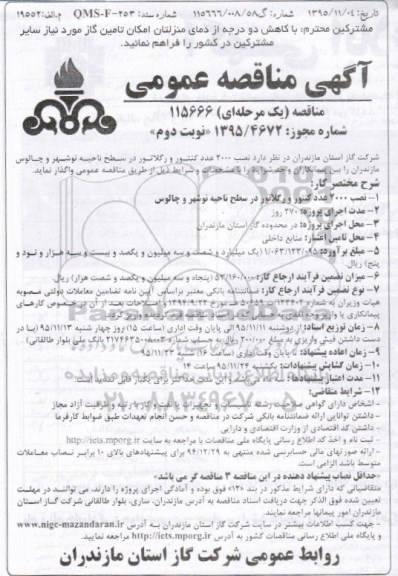 تاریخ: ۱۳۹۵/۱۱/۰۴ شماره: گ۱۱۵۶۶۶/۰۰۸/۵۸ شماره سند: QMS-F-۲۵۳ م.الف:۱۹۵۵۲
مشترکین محترم: با کاهش دو درجه از دمای منزلتان امکان تامین گاز مورد نیاز سایر
مشترکین در کشور را فراهم نمائید.
آگهی مناقصه عمومی
مناقصه (یک مرحله‌ای) ۱۱۵۶۶۶
شماره مجوز: ۱۳۹۵/۴۶۷۲ «نوبت دوم»
شرکت گاز استان مازندران در نظر دارد نصب ۲۰۰۰ عدد کنتور و رگلاتور در سطح ناحیه نوشهر و چالوس
مازندران را بین پیمانکاران واجد شرایط را با مشخصات و شرایط ذیل از طریق مناقصه عمومی واگذار نماید.
شرح مختصر کار:
۱- نصب ۲۰۰۰ عدد کنتور و رگلاتور در سطح ناحیه نوشهر و چالوس
۲- مدت اجرای پروژه: ۲۷۰ روز
۳- محل اجرای پروژه: در محدوده گاز استان مازندران
۴- محل تامین اعتبار: منابع داخلی
۵- مبلغ برآورد: ۱/۰۶۳/۱۲۳/۰۹۵ (یک میلیارد و شصت و سه میلیون و یکصد و بیست و سه هزار و نود و
پنج) ریال.
۶- میزان تضمین فرآیند ارجاع کار: ۵۳/۱۶۰/۰۰۰ (پنجاه و سه میلیون و یکصد و شصت هزار) ریال.
۷- نوع تضمین فرآیند ارجاع کار: ضمانتنامه بانکی معتبر براساس آیین نامه تضامین معاملات دولتی مصوبه
هیات وزیران به شماره
پیمانکاری
۸- زمان توزیع اسناد: از دوشنبه ۹۵/۱۱/۱۱ الی پایان وقت اداری (ساعت ۱۵) روز چهار شنبه ۹۵/۱۱/۱۳ (با در
دست داشتن فیش واریزی به مبلغ ۲۰۰/۰۰۰ ریال به حساب شماره بانک ملی بلوار طالقانی)
۹- زمان اعاده پیشنهاد: تا پایان وقت اداری (ساعت ۱۶) شنبه ۹۵/۱۱/۲۳
۱۰- زمان گشایش پیشنهادات: یکشنبه ۹۵/۱۱/۲۴ ساعت ۱۴
۱۱- مدت اعتبار پیشنهادها:
۱۲- شرایط متقاضی:
- اشخاص دارای گواهی صلاحیت
- داشتن توانایی ارائه ضمانتنامه بانکی شرکت در مناقصه و حسن انجام تعهدات طبق ضوابط کارفرما
- داشتن کد اقتصادی از وزارت اقتصادی و دارایی
- ثبت نام و اخذ کد اطلاع رسانی پایگاه ملی مناقصات با مراجعه به سایت http://iets.mporg.ir
- ارائه صورتهای مالی حسابرسی شده منتهی به ۹۴/۱۲/۲۹ برای پیشنهادهای بالای ۱۰ برابر نصاب معاملات
متوسط باشد الزامی است.
حداقل نصاب پیشنهاد دهنده در این مناقصه ۳ مناقصه گر می باشد.
متقاضیانی که دارای شرایط مذکور در بند «۱۲» فوق بوده و آمادگی اجرای پروژه را دارند، می توانند در مهلت
تعیین شده فوق الذکر جهت دریافت اسناد مناقصه به آدرس مازندران، ساری، بلوار طالقانی شرکت گاز استان
مازندران امور پیمانها مراجعه نمایند.
- جهت کسب اطلاعات بیشتر در سایت شرکت گاز استان مازندران به آدرس www.nigc-mazandaran.ir
و پایگاه ملی اطلاع رسانی مناقصات کشور به آدرس http://iets.mporg.ir مراجعه نمایید.
روابط عمومی شرکت گاز استان مازندران